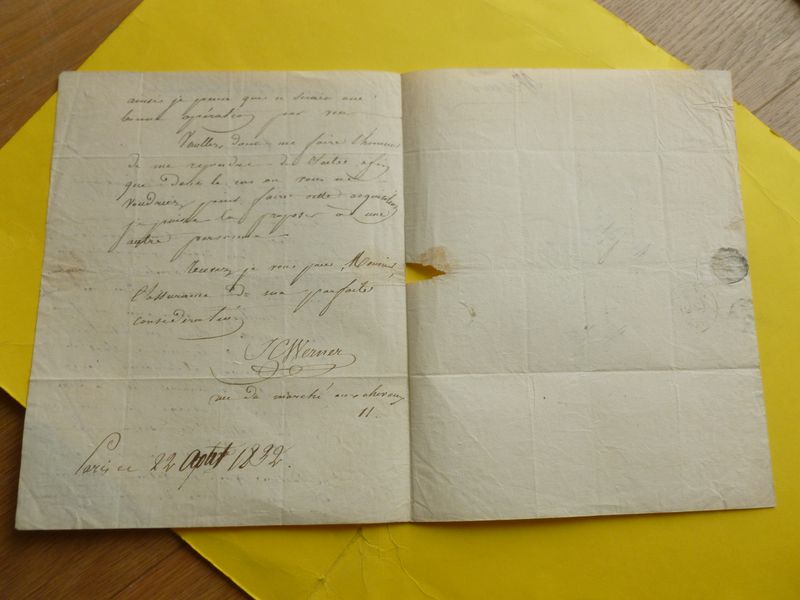 ainsi je pense que ce serait une
bonne opération pour vous
Veuillez donc me faire l'honneur
de me repondre de suite afin
que dans le cas ou vous ne
voudriez point faire cette acquisition
je puisse la proposer à une
autre personne
Recevez je vous prie, Monsieur,
l'assurance de ma parfaite
considération
JC Werner
rue du marché aux chevaux
11.
Paris ce 22 Août 1832.